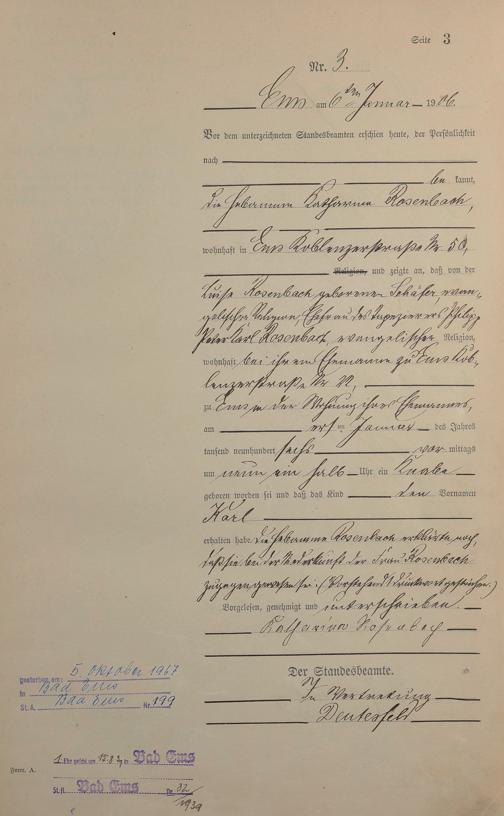 Seite 3
Nr. 3.
Ems am 6ten Januar 1906.
Vor dem unterzeichneten Standesbeamten erschien heute, der Persönlichkeit
nach
be kannt,
die Hebamme Katharina Rosenbach,
wohnhaft in Ems Koblenzerstraße Nr 50,
Religion, und zeigte an, daß von der
Luise Rosenbach geborenen Schäfer evan-
gelischer Religion, Ehefrau des Tapezierers Philipp
Peter Karl Rosenbach, evangelischer Religion,
wohnhaft bei ihrem Ehemanne zu Ems Kob-
lenzerstraße Nr 22,
zu Ems in der Wohnung ihres Ehemannes,
am ersten Januar des Jahres
tausend neunhundert sechs vor mittags
um neun ein halb Uhr ein Knabe
geboren worden sei und daß das Kind den Vornamen
Karl
erhalten habe. Die Hebamme Rosenbach erklärte noch,
daß sie bei der Niederkunft der Frau Rosenbach
zugegen gewesen sei. (Vorstehend 1 Druckwort gestrichen.)
Vorgelesen, genehmigt und unterschrieben.
Katharina Rosenbach
Der Standesbeamte.
In Vertretung
gestorben am: 5. Oktober 1967
in Bad Ems
St. A. Bad Ems Nr. 199
1. Ehe geschl. am in Bad Ems
St. A. Bad Ems Nr. 32/1939
Form. A.